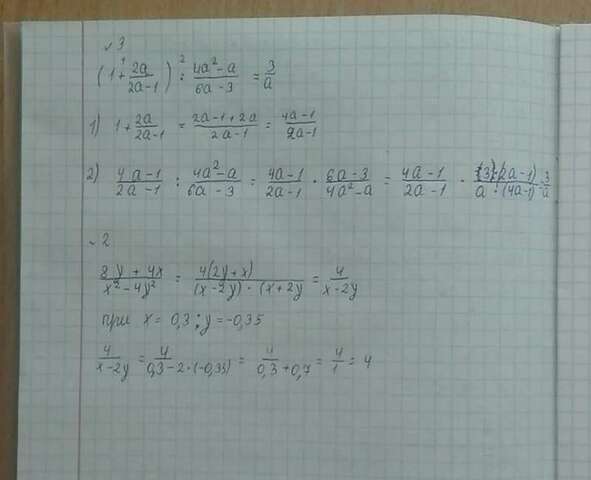 №3
(1 + 2a/(2a-1)) : (4a²-a)/(6a-3) = 3/a
1) 1 + 2a/(2a-1) = (2a-1+2a)/(2a-1) = (4a-1)/(2a-1)
2) (4a-1)/(2a-1) : (4a²-a)/(6a-3) = (4a-1)/(2a-1) · (6a-3)/(4a²-a) = (4a-1)/(2a-1) · (3·(2a-1))/(a·(4a-1)) = 3/a
№2
(8y + 4x)/(x²-4y²) = 4(2y+x)/((x-2y)·(x+2y) = 4/(x-2y)
при x = 0,3; y = -0,35
4/(x-2y) = 4/(0,3-2·(-0,35)) = 4/(0,3+0,7) = 4/1 = 4